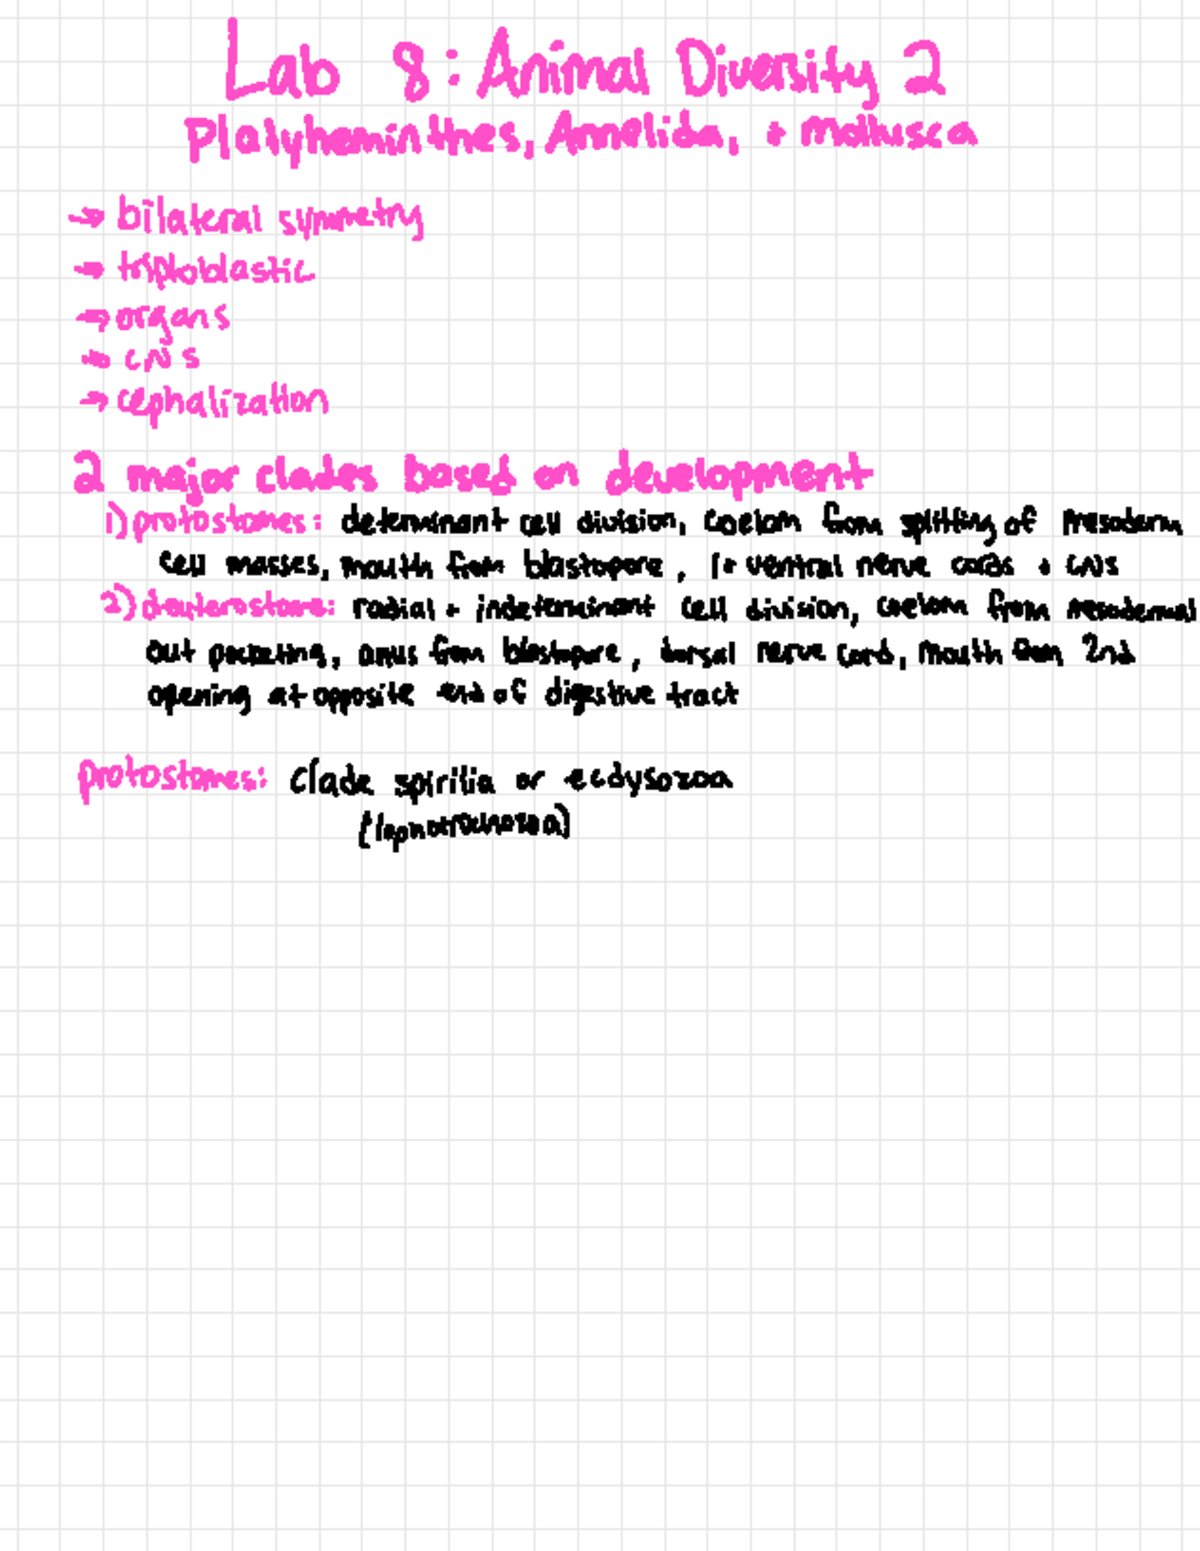 Lab 8: Animal Diversity 2
Platyheminthes, Annelida, + Mollusca
→ bilateral symmetry
→ triploblastic
→ organs
→ CNS
→ cephalization
2 major clades based on development
1) protostomes: determinant cell division, coelom from splitting of mesoderm
cell masses, mouth from blastopore, 1+ ventral nerve cords + CNS
2) deuterostome: radial + indeterminant cell division, coelom from mesodermal
out pocketing, anus from blastopore, dorsal nerve cord, mouth from 2nd
opening at opposite end of digestive tract
protostomes: Clade spirilia or ecdysozoa
(lophotrochozoa)